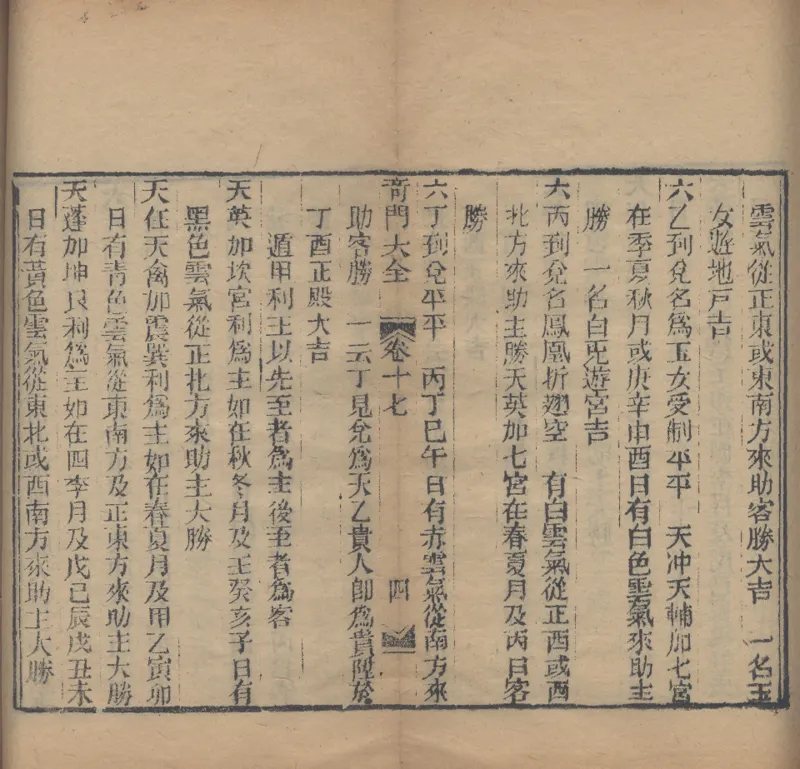 雲氣從正東或東南方來助客勝大吉　一名玉
女遊地戸吉
六乙到兌名爲玉女受制平平　天冲天輔加七宮
在季夏秋月或庚辛申酉日有白色雲氣來助主
勝　一名白兎遊宮吉
六丙到兌名鳳凰折翅空　有白雲氣從正西或西
北方來助主勝天英加七宮在春夏月及丙日客
勝
六丁到兌平平　丙丁巳午日有赤雲氣從南方來
奇門大全　卷十七　四
助客勝　一云丁見兌爲天乙貴人卽爲貴陞於
丁酉正殿大吉
遁甲利主以先至者爲主後至者爲客
天英加坎宮利爲主如在秋冬月及壬癸亥子日有
黑色雲氣從正北方來助主大勝
天任天禽加震巽利爲主如在春夏月及甲乙寅卯
日有青色雲氣從東南方及正東方來助主大勝
天蓬加坤艮利爲主如在四季月及戊己辰戌丑未
日有黃色雲氣從東北或西南方來助主大勝